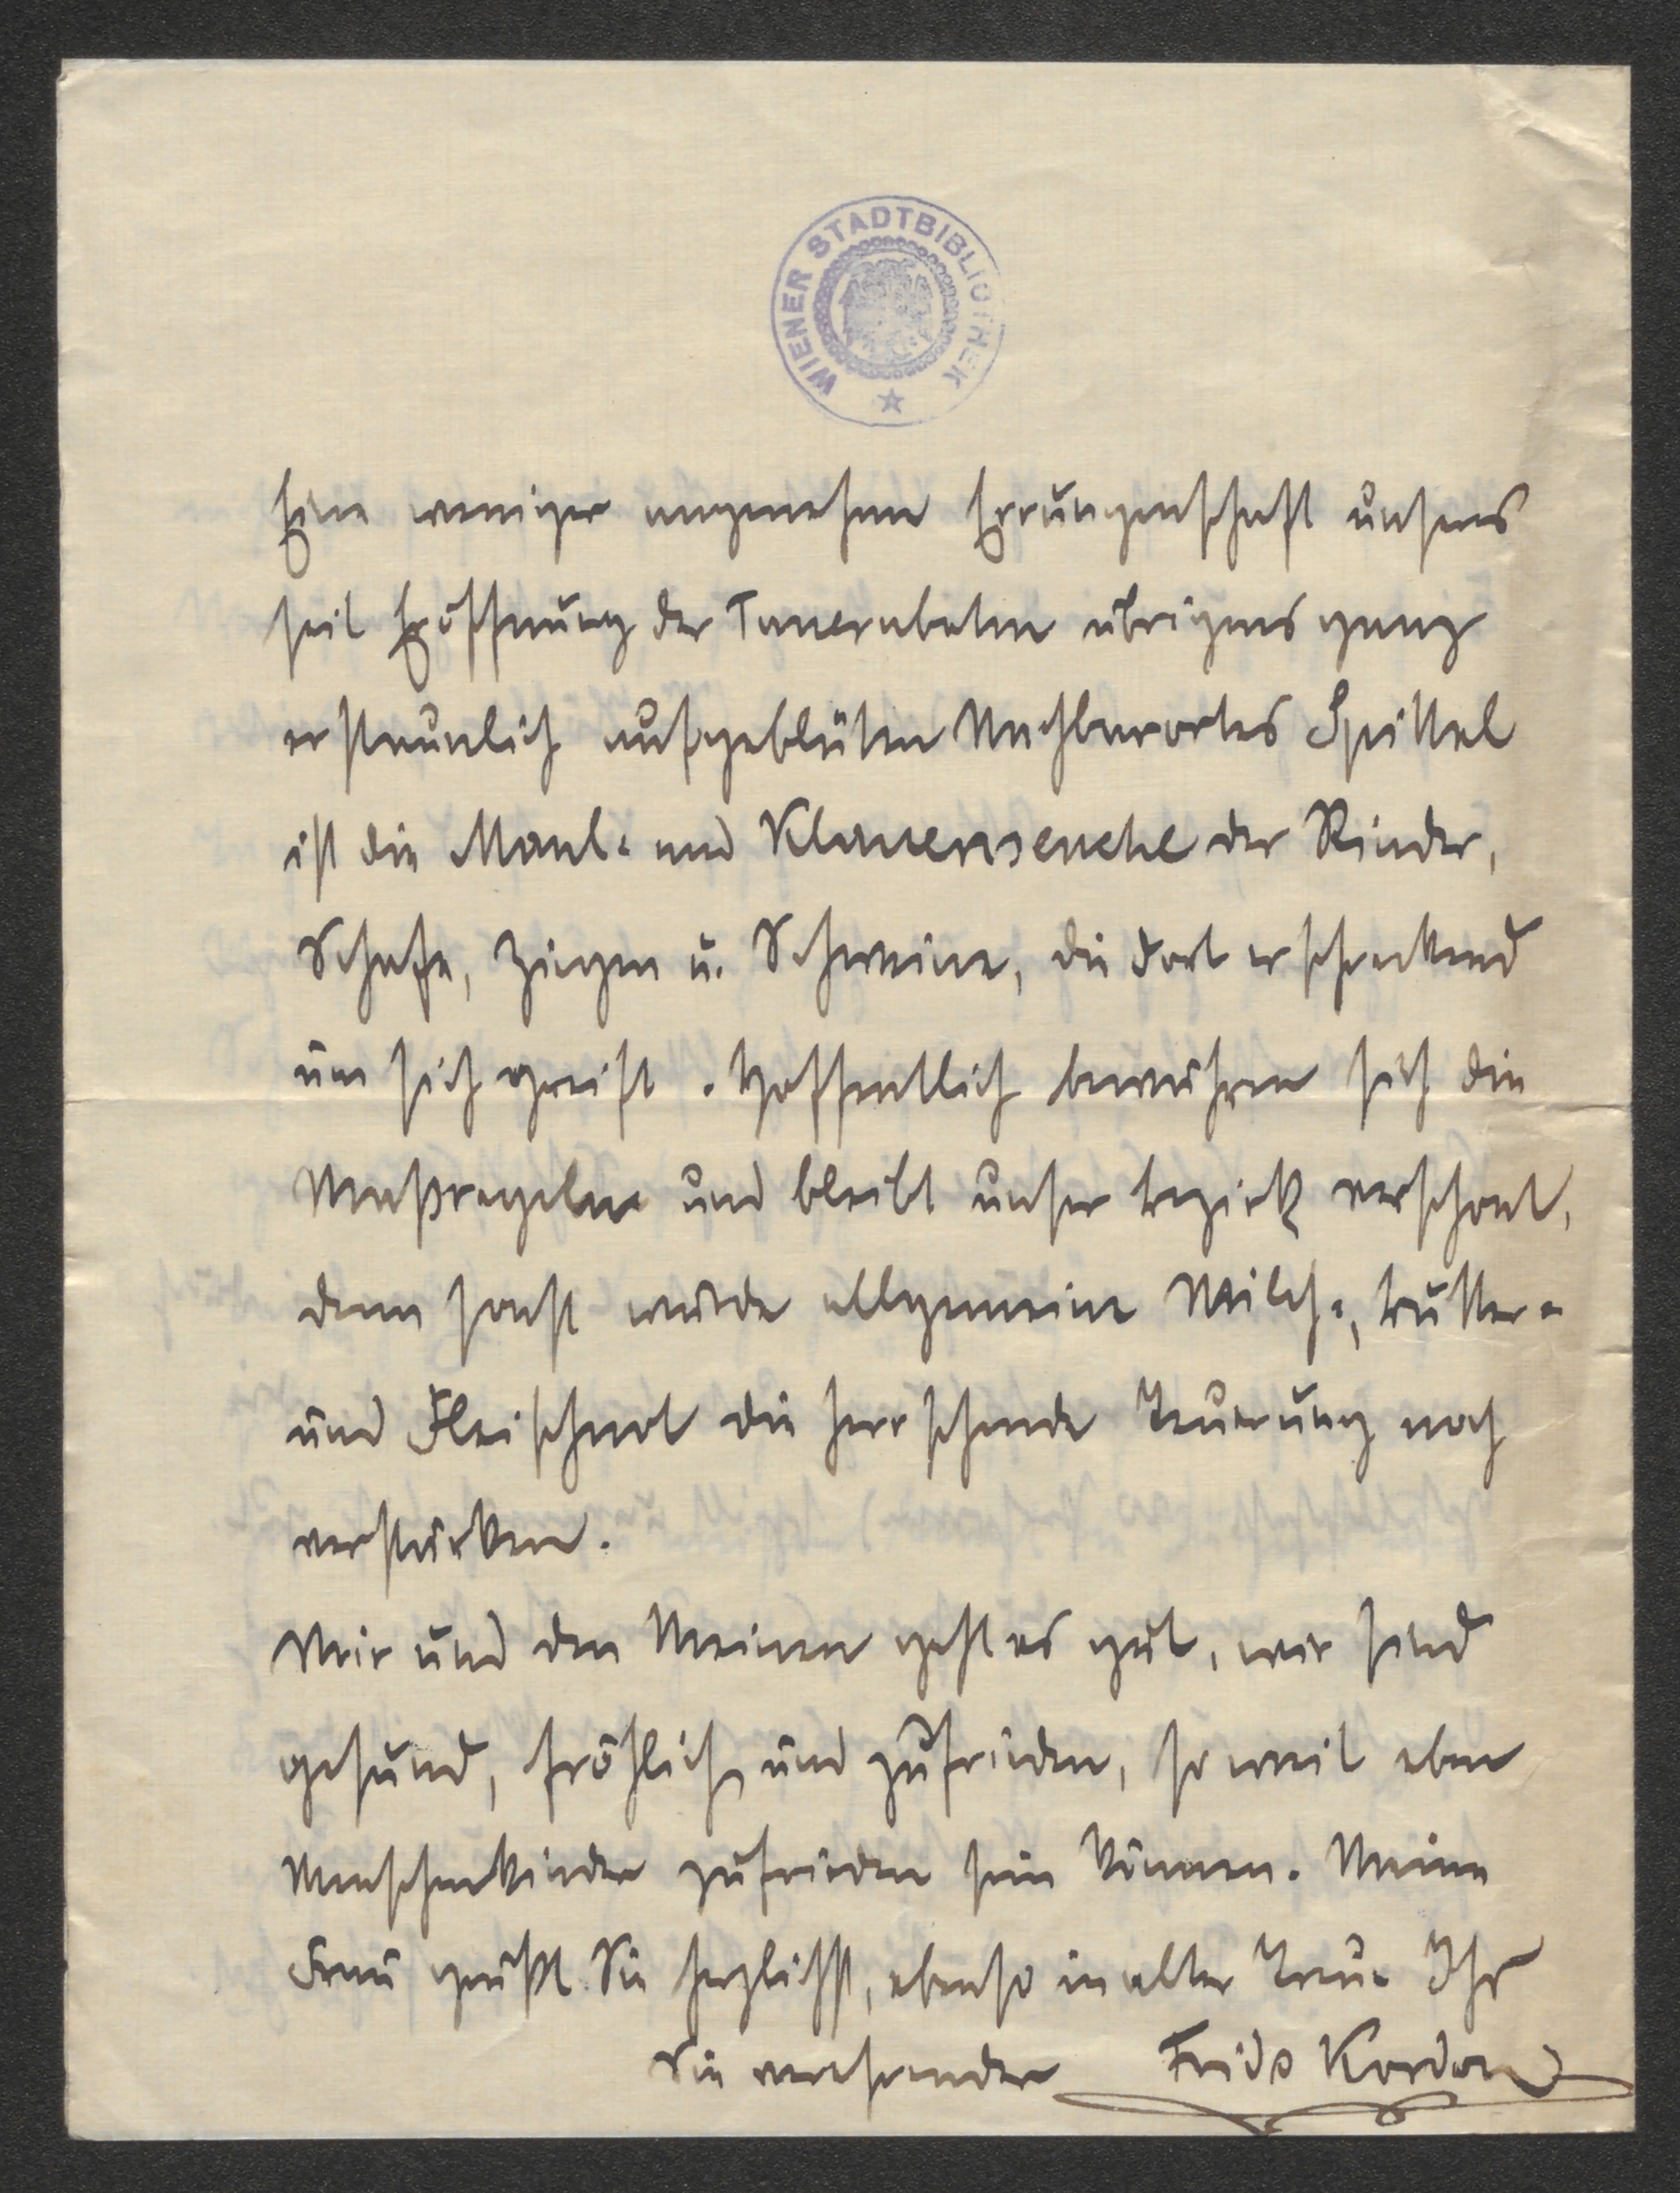 WIENER STADTBIBLIOTHEK
Eine weniger angenehme Errungenschaft unseres
seit Eröffnung der Tauernbahn übrigens ganz
erstaunlich aufgeblühten Nachbarortes Spittal
ist die Maul- und Klauenseuche der Rinder,
Schafe, Ziegen u. Schweine, die dort erschreckend
um sich greift. Hoffentlich bewähren sich die
Maßregeln und bleibt unser Bezirk verschont,
denn sonst würde allgemeine Milch-, Butter-
und Fleischnot die herrschende Teuerung noch
verstärken.
Mir und den Meinen geht es gut, wir sind
gesund, fröhlich und zufrieden, so weit eben
Menschenkinder zufrieden sein können. Meine
Frau grüßt Sie herzlichst, ebenso in alter Treue Ihr
Sie verehrender Frido Kordon